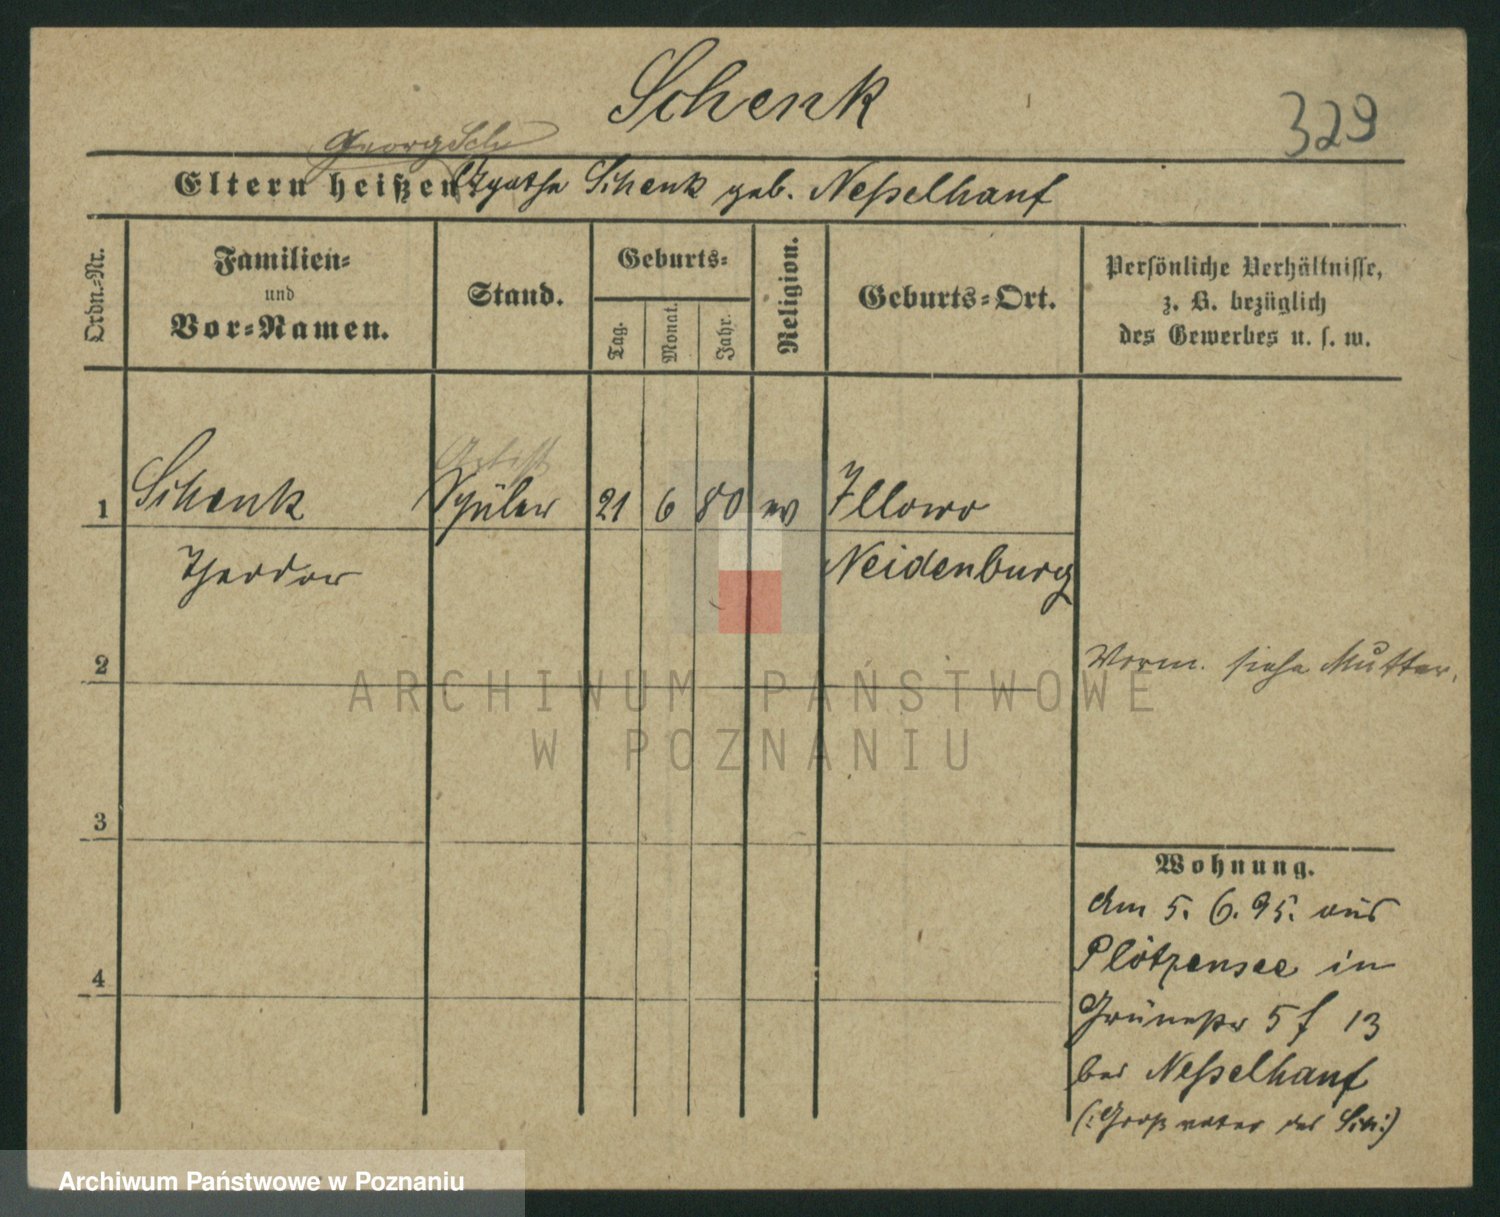 Schenk
329
Georg Sch
Eltern heißen: Agathe Schenk geb. Neßelhauf
Ordn.-Nr.
Familien-
und
Vor-Namen.
Stand.
Geburts-
Tag.
Monat.
Jahr.
Religion.
Geburts-Ort.
Persönliche Verhältnisse,
z. B. bezüglich
des Gewerbes u. s. w.
Artist
1 Schenk Schüler 21 6 80 ev Illowo
Theodor Neidenburg
2
Vorm. siehe Mutter.
ARCHIWUM PAŃSTWOWE
W POZNANIU
3
Wohnung.
Am 5. 6. 95. aus
Plötzensee in
4
Grünestr 5 f 13
bei Neßelhauf
(: Großvater des Sch:)
Archiwum Państwowe w Poznaniu